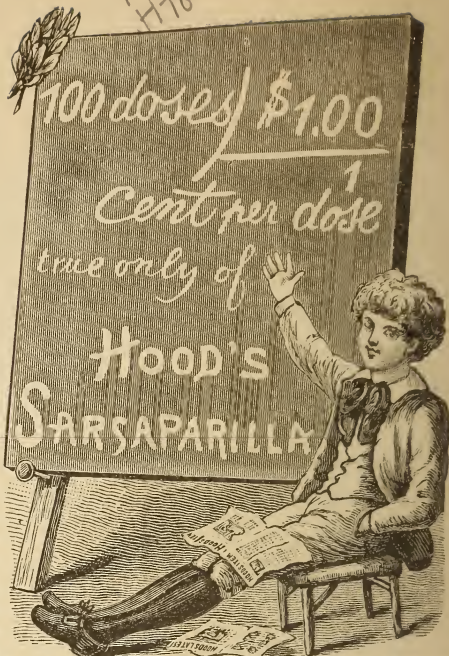 100 doses) $1.00
1
cent per dose
true only of
HOOD'S
SARSAPARILLA